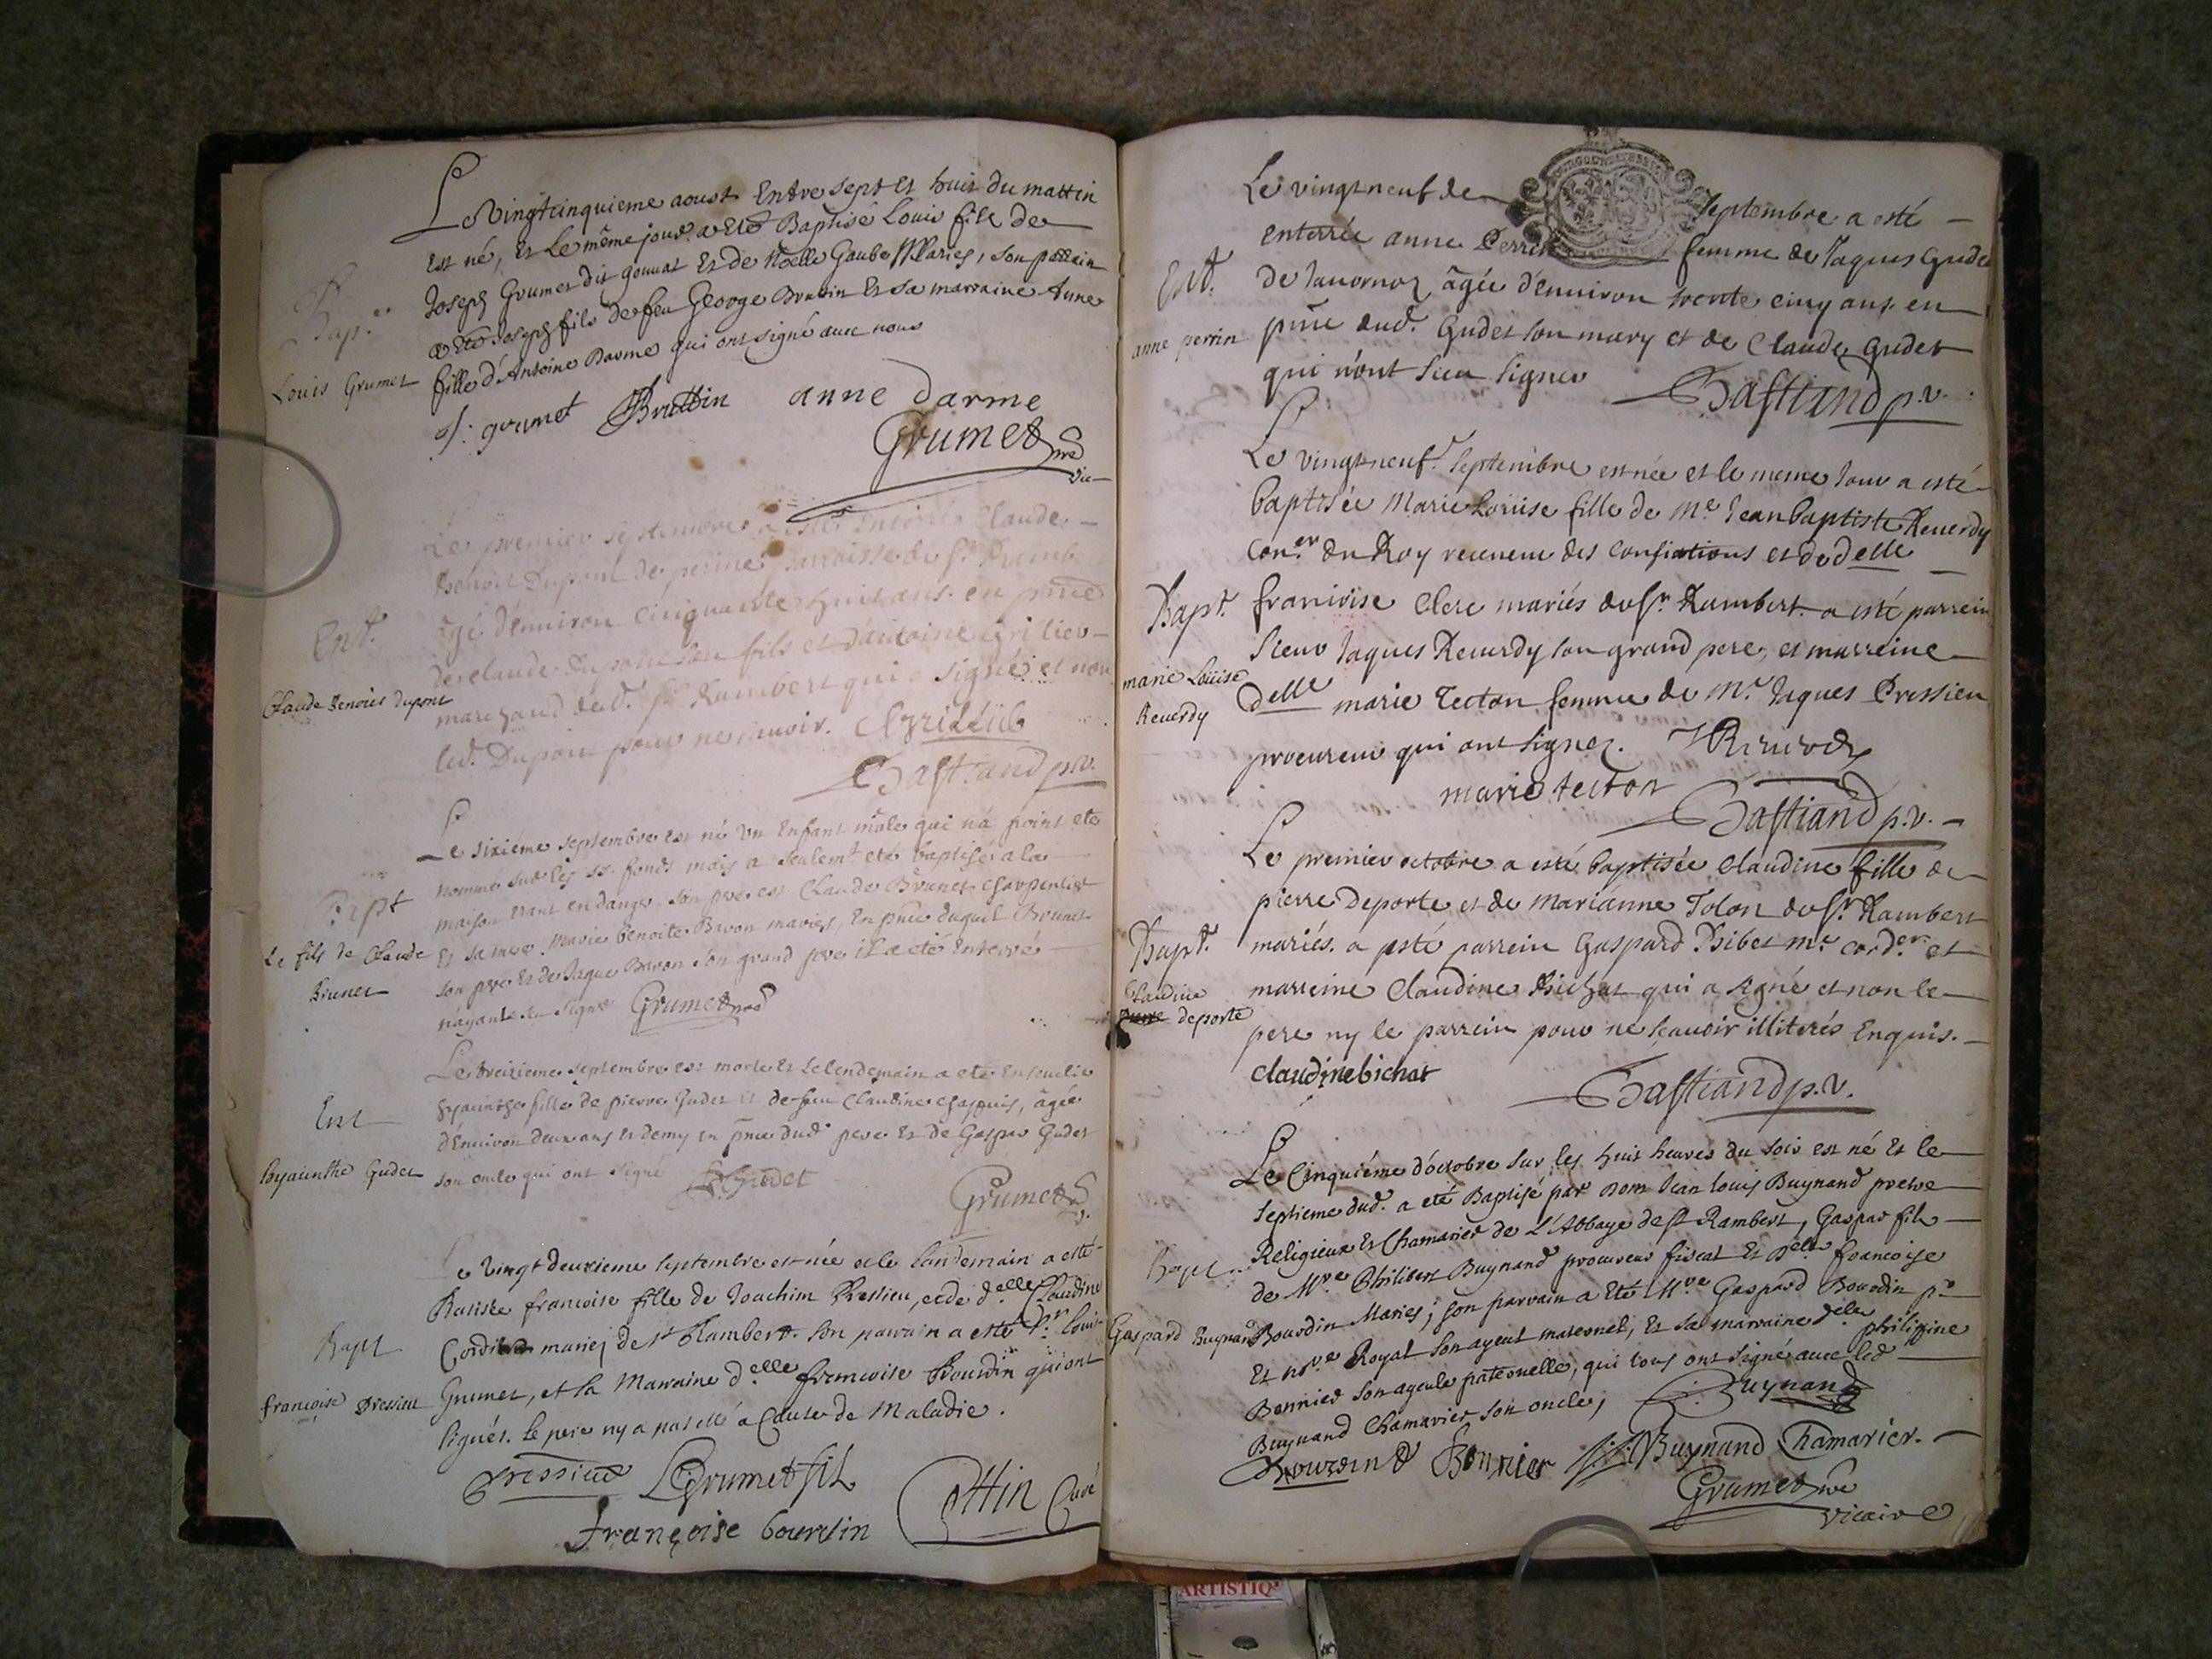 Le Vingtcinquieme aoust Entre sept et huit du mattin
Est né, Et Le même jour a Eté Baptisé Louis fils de
Joseph Grumet dit gonnat Et de Noelle Gaube Maries, son parrain
Bap.
a Eté Joseph fils de feu George Bruttin Et sa marraine Anne
Louis Grumet
fille d'Antoine Darme qui ont signé avec nous
J: grumet Bruttin anne darme
Grumet pre
vic
Le premier septembre a esté enterré Claude
Benoit Dupont de perine parroisse de St Ramb
Ent.
âgé d'enuiron Cinquante huit ans. en pnce
de claude Dupont son fils et d'antoine
Claude Benoist dupont
marchand dud. St Rambert qui a signé et non
led. Dupont pour ne scauoir.
Bastiand p.v.
Le sixiéme septembre est né un Enfant mâle qui n'a point eté
nommé sur les SS. fonds mais a seulemt eté baptisé a la
Bapt
maison etant en danger, son pere est Claude Brunet charpentier
Le fils de Claude
Brunet
Et sa mere Marie benoite Baron mariés, En pnce duquel Brunet
son pere Et de Jaque Baron son grand pere il a eté Enterré
n'ayants seu signer Grumet pre
Le treizieme septembre est morte Et le lendemain a eté Enseuelie
Ent
hyacinthe fille de pierre Gudet Et de feu Claudine chapuis, âgée
d'Enuiron deux ans Et demy en pnce dud. pere Et de Gaspar Gudet
hyacinthe Gudet
son oncle qui ont signé Gudet
Grumet p
v.
Le Vingt deuxieme septembre est née et le landemain a esté
Batisée francoise fille de Joachim Pressieu, et de delle Claudine
Bapt
mariez de st Rambert. son parrain a esté Sr. Louis
françoise Pressieu
Grumet, et la Marraine delle francoise Bourdin qui ont
signés. le pere ny a pas esté a Cause de Maladie.
Pressieu LGrumet fils
Françoise bourdin Cottin Curé
Le vingt neuf de septembre a esté
enterrée anne Perrin femme de Jaques Gudet
Ent.
de Jauornoz âgée d'enuiron trente cinq ans en
anne perrin
pnce dud. Gudet son mary et de Claude Gudet
qui n'ont sceu signer Bastiand p.v.
Le vingt neuf septembre est née et le meme Jour a esté
baptisée Marie Loüise fille de Me Jean baptiste Reuerdy
Coner du Roy receueur des Consinations et de delle
Bapt.
francoise Clerc mariés de St. Rambert a esté parrein
Sieur Jaques Reuerdy son grand pere, et marreine
marie Loüise
Reuerdy
delle marie Tecton femme de Mr. Jaques Pressieu
procureur qui ont signez. JReuerdy
marie tecton
Bastiand p.v.
Le premier octobre a esté baptisée Claudine fille de
pierre Deporte et de Marianne Tolon de St. Rambert
Bapt.
mariés. a esté parrein Gaspard Bibet me Corder et
marreine Claudine Bichat qui a signé et non le
Claudine
pierre deporte
pere ny le parrein pour ne scauoir illiterés Enquis.
claudine bichat
Bastiand p.v.
Le Cinquiéme d'octobre sur les huit heures du soir est né Et le
septieme dud. a eté Baptisé par Dom Jean Louis Buynand pretre
Religieux Et Chamarier de L'Abbaye de St Rambert, Gaspar fils
Bapt
de Mre Philibert Buynand procureur fiscal Et Delle francoise
Gaspard Buynand
Bourdin Maries; son parrain a Eté Mre Gaspard Bourdin pr
Et nore Royal son ayeul maternel, Et sa marraine delle philipine
Bonnier son ayeule paternelle, qui tous ont signé auec led
Buynand Chamarier son oncle; Buynand
Bourdin Bonnier Buynand Chamarier.
Grumet pre
vicaire
ARTISTIQ